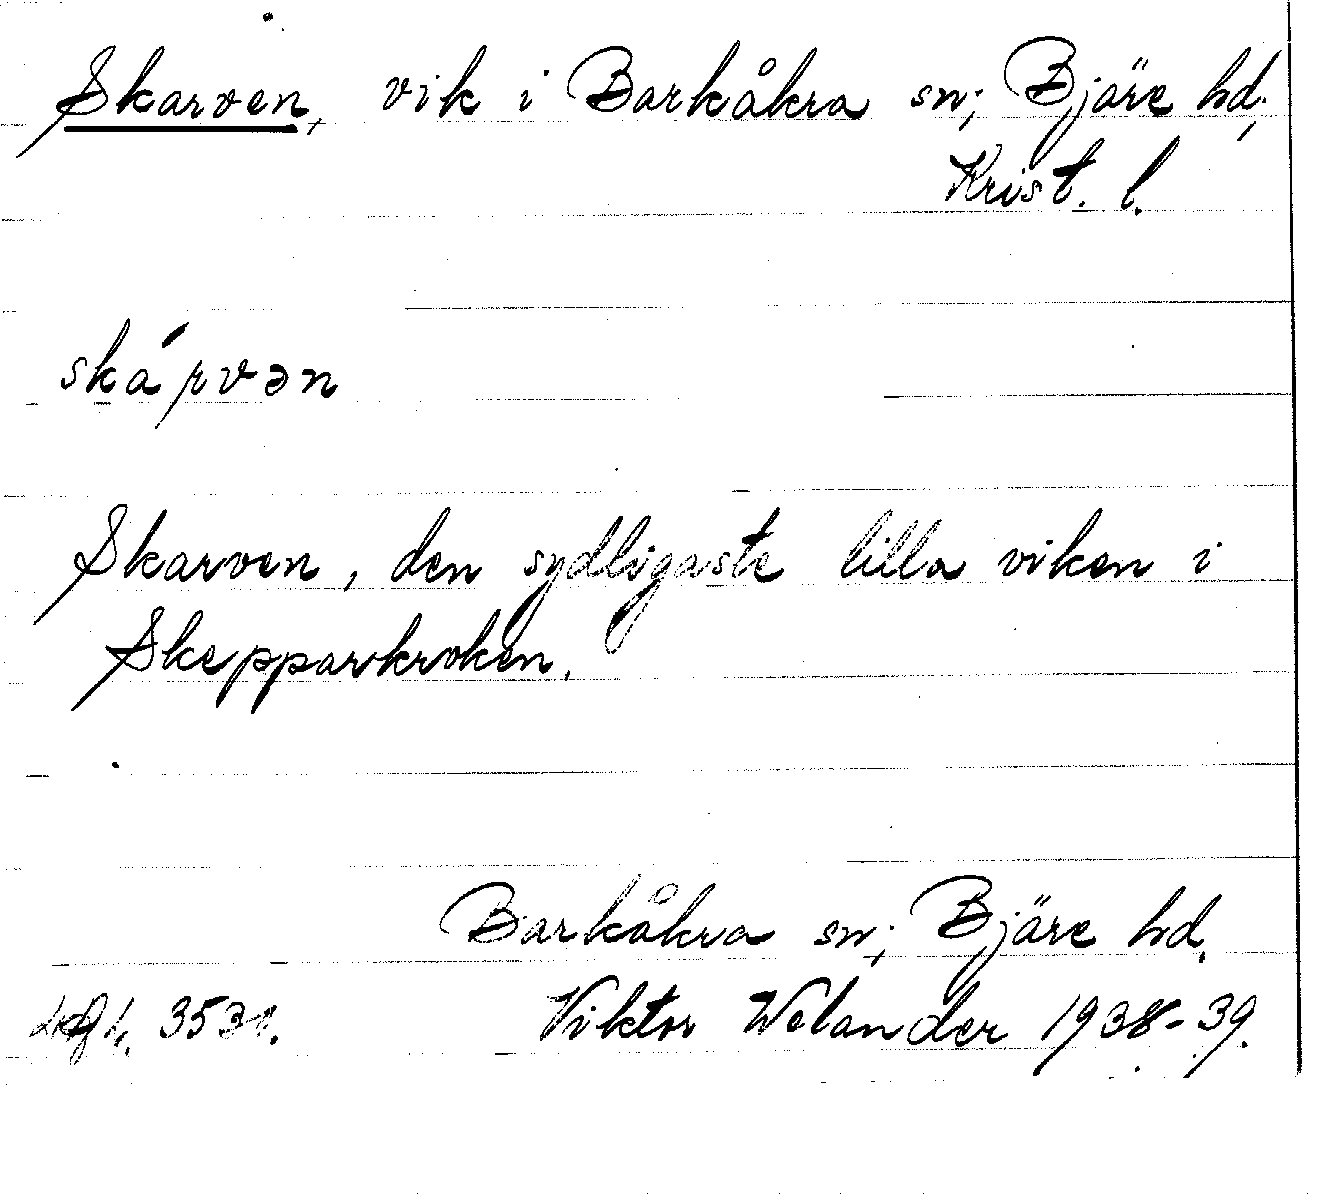 Skarven, vik i Barkåkra sn; Bjäre hd;
Krist. l.
skárvən
Skarven, den sydligaste lilla viken i
Skepparkroken.
Barkåkra sn; Bjäre hd.
3531. Viktor Welander 1938-39.